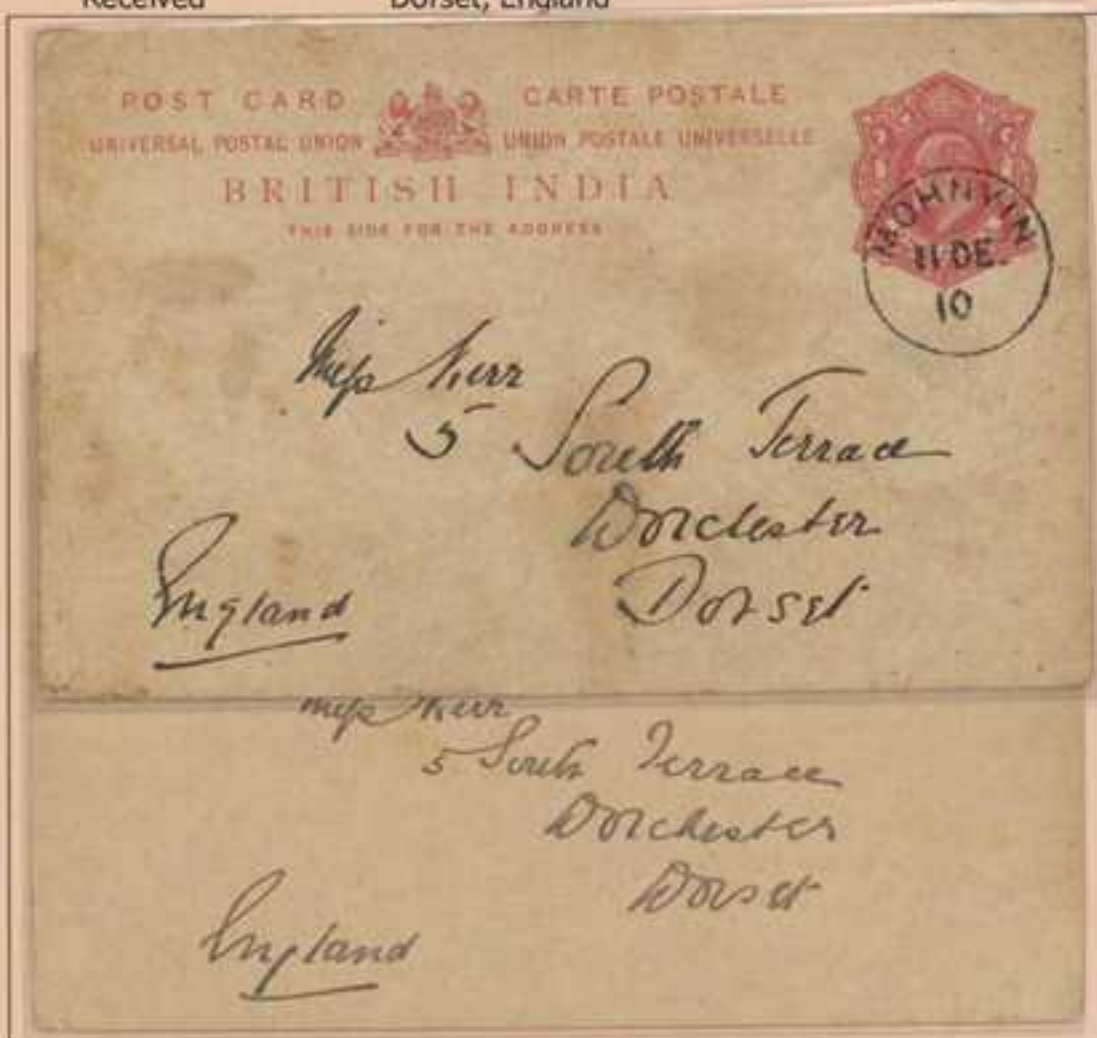 Received Dorset, England
POST CARD CARTE POSTALE
UNIVERSAL POSTAL UNION UNION POSTALE UNIVERSELLE
BRITISH INDIA
THIS SIDE FOR THE ADDRESS
MOHNYIN
11 DE.
10
Miss Kerr
5 South Terrace
Dorchester
Dorset
England
Miss Kerr
5 South Terrace
Dorchester
Dorset
England